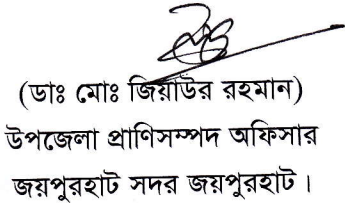 (ডাঃ মোঃ জিয়াউর রহমান)
উপজেলা প্রাণিসম্পদ অফিসার
জয়পুরহাট সদর জয়পুরহাট।